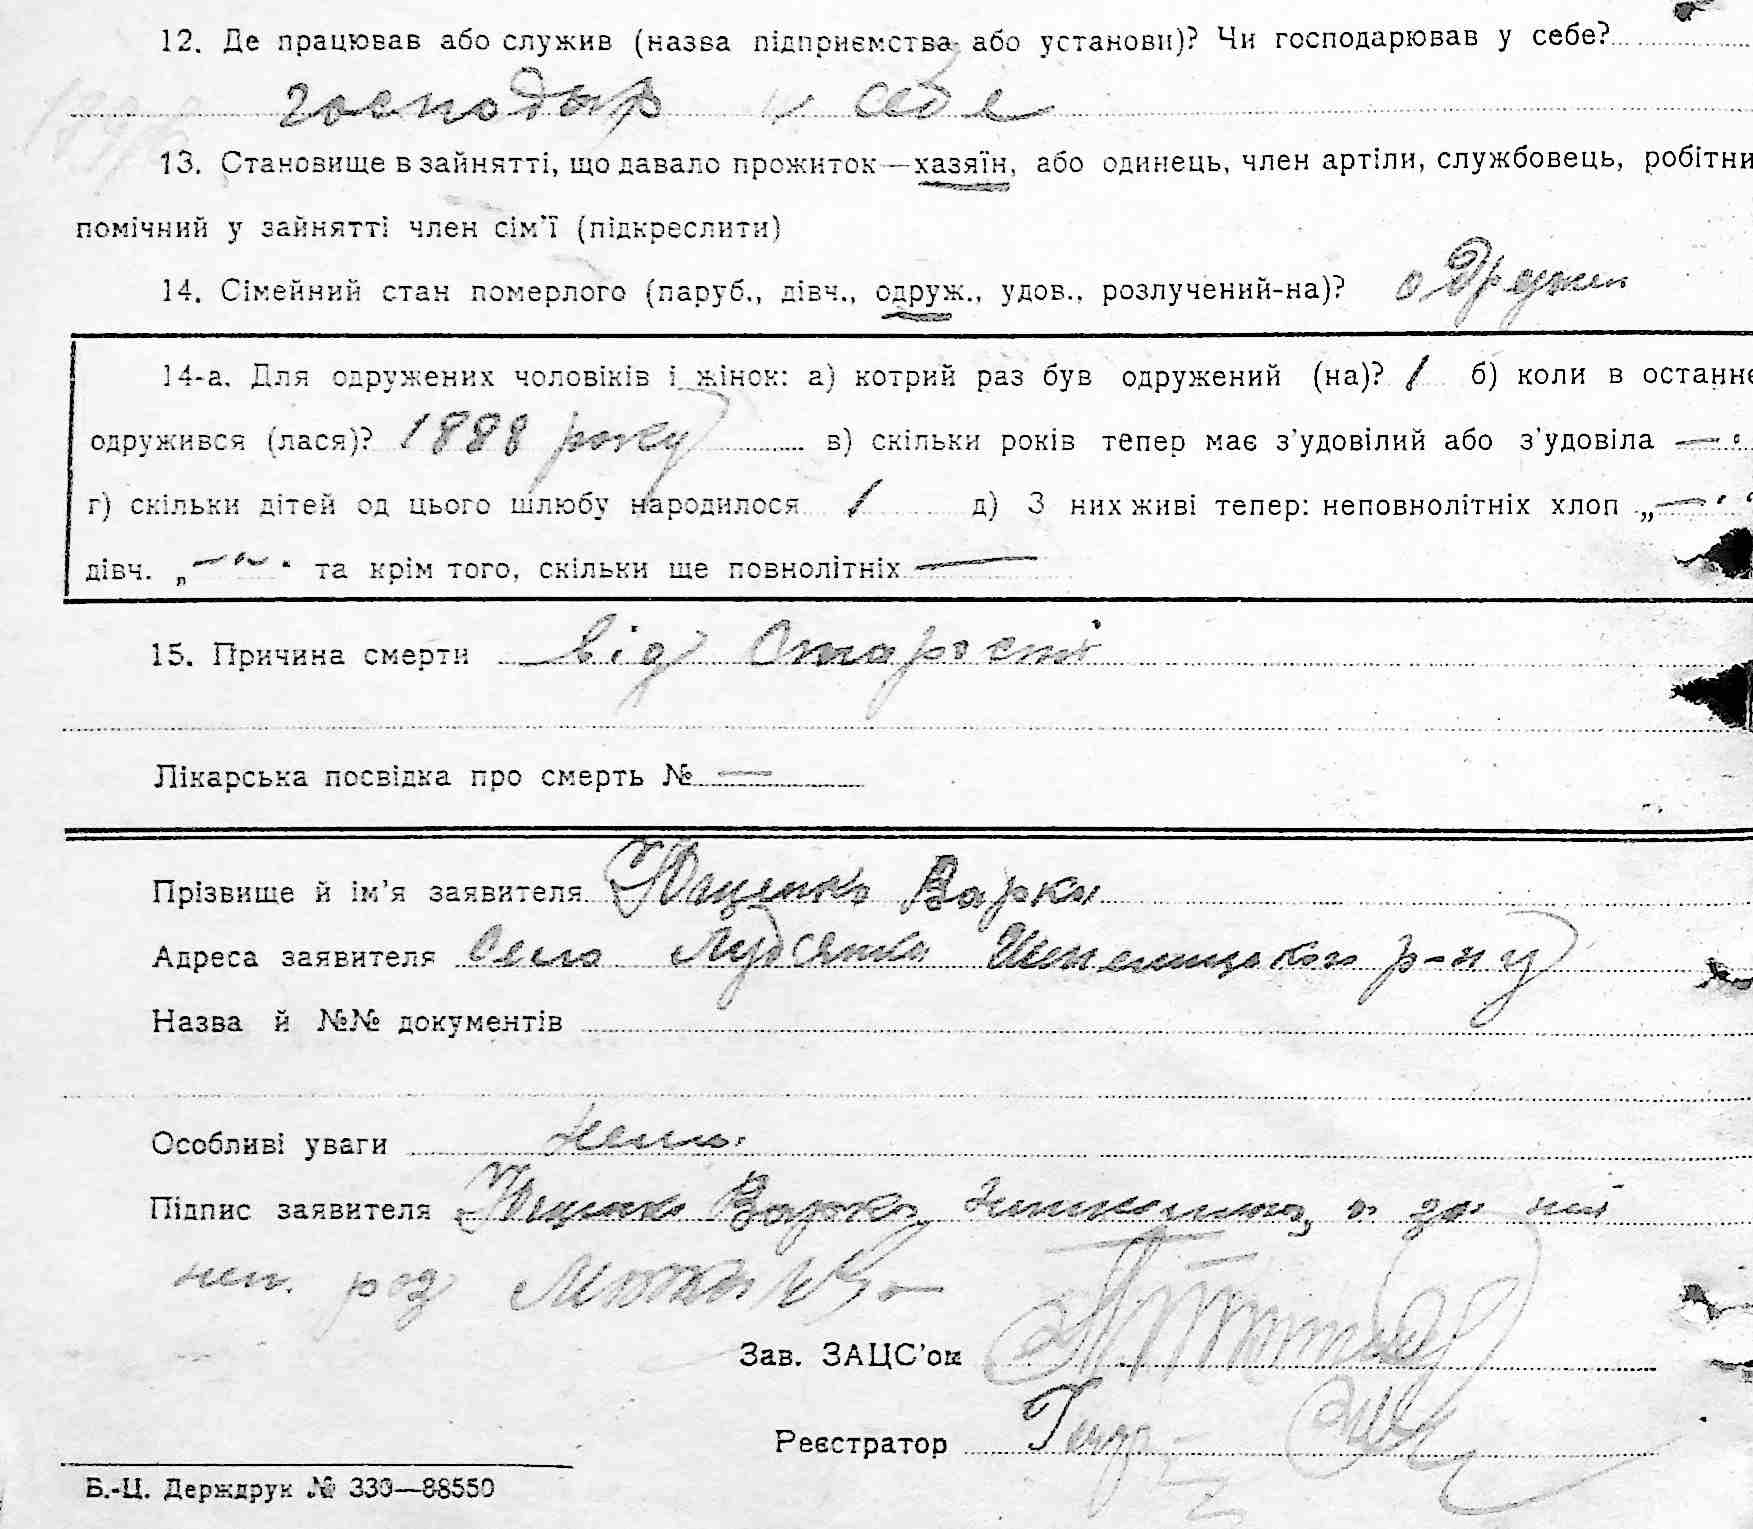 12. Де працював або служив (назва підприємства або установи)? Чи господарював у себе?
господар у себе
13. Становище в зайнятті, що давало прожиток—хазяїн, або одинець, член артіли, службовець, робітни
помічний у зайнятті член сім'ї (підкреслити)
14. Сімейний стан померлого (паруб., дівч., одруж., удов., розлучений-на)? одружен
14-а. Для одружених чоловіків і жінок: а) котрий раз був одружений (на)? 1 б) коли в останнє
одружився (лася)? 1888 року в) скільки років тепер має з'удовілий або з'удовіла —
г) скільки дітей од цього шлюбу народилося 1 д) З них живі тепер: неповнолітніх хлоп „—"
дівч. „—" та крім того, скільки ще повнолітніх —
15. Причина смерти від старости
Лікарська посвідка про смерть № —
Прізвище й ім'я заявителя Ющенко Варка
Адреса заявителя Село р-ну
Назва й №№ документів
Особливі уваги нема
Підпис заявителя Ющенко Варка неписьменна, а за неї
неп. роз
Зав. ЗАЦС'ом
Реєстратор
Б.-Ц. Держдрук № 330—88550